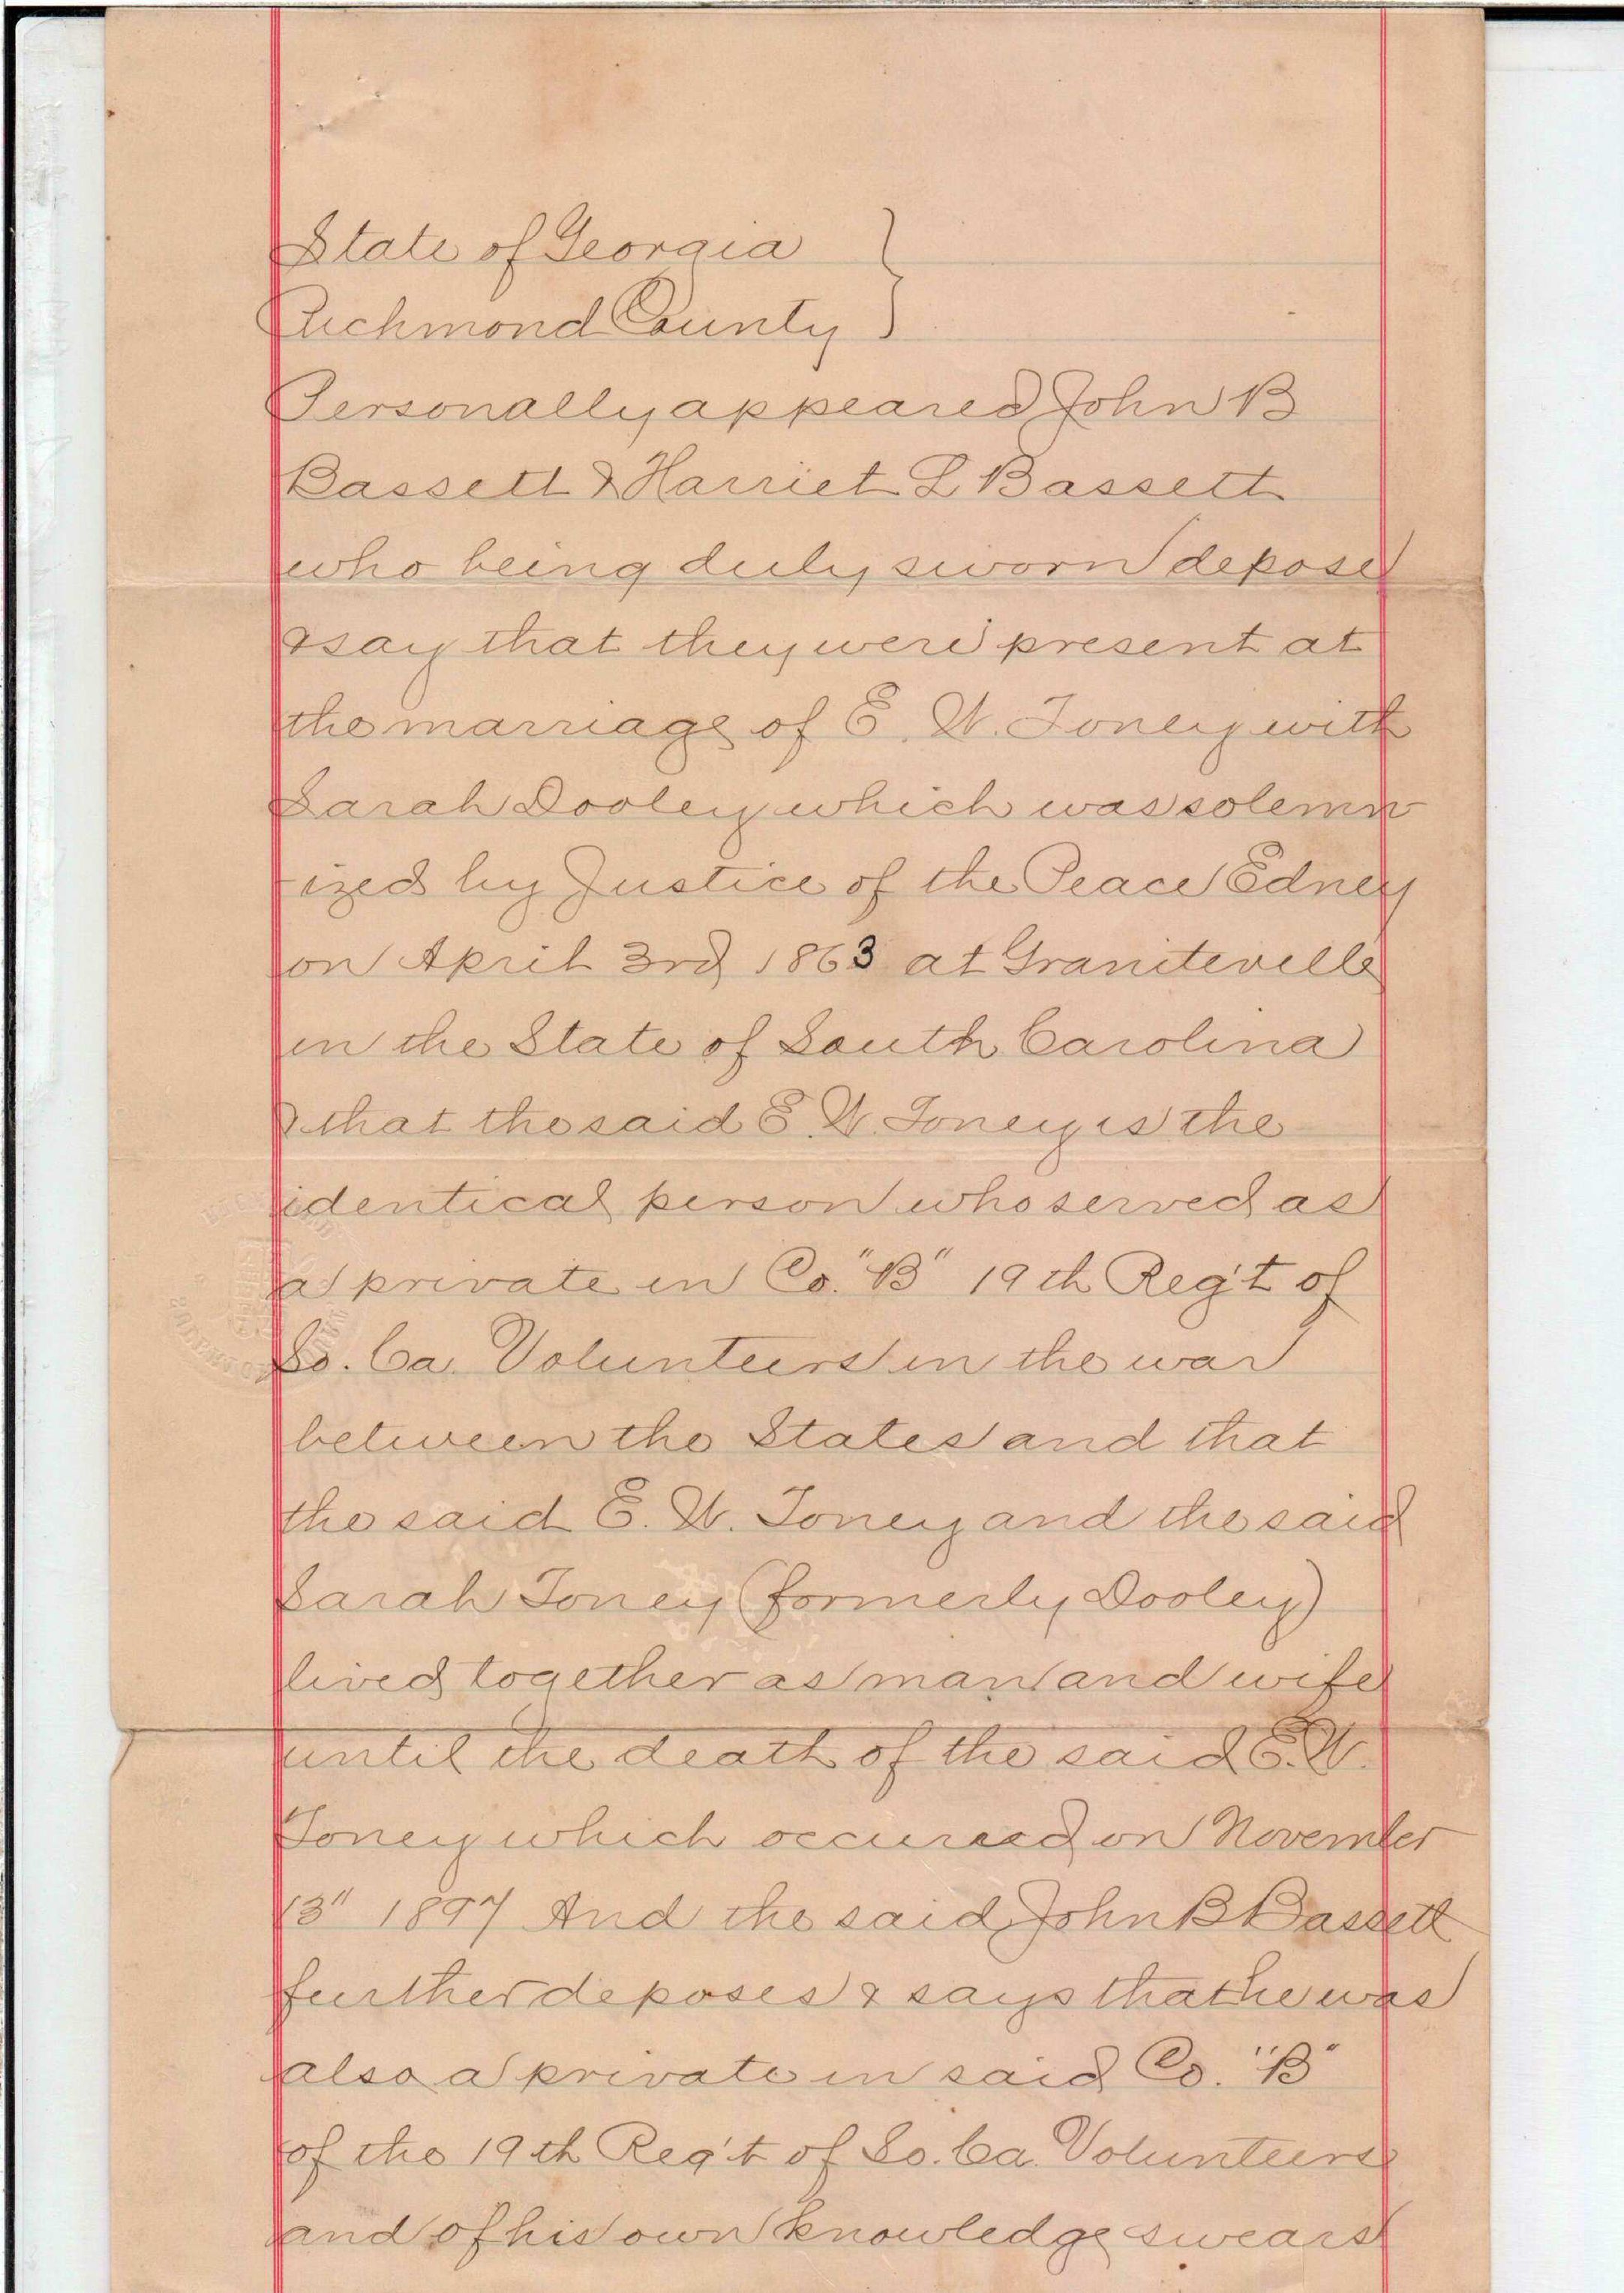 State of Georgia }
Richmond County }
Personally appeared John B
Bassett & Harriet L Bassett
who being duly sworn depose
& say that they were present at
the marriage of E. W. Toney with
Sarah Dooley which was solemn-
-ized by Justice of the Peace Edney
on April 3rd 1863 at Graniteville
in the State of South Carolina
& that the said E. W. Toney is the
identical person who served as
a private in Co. "B" 19th Reg't of
So. Ca. Volunteers in the war
between the States and that
the said E. W. Toney and the said
Sarah Toney (formerly Dooley)
lived together as man and wife
until the death of the said E. W.
Toney which occurred on November
13" 1897 And the said John B Bassett
further deposes & says that he was
also a private in said Co. "B"
of the 19th Reg't of So. Ca. Volunteers
and of his own knowledge swears